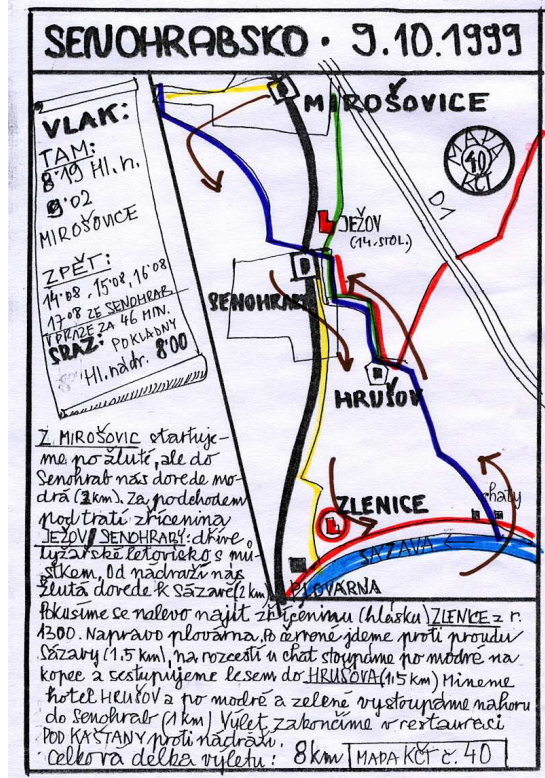 SENOHRABSKO • 9.10.1999
VLAK:
TAM:
8°19 Hl.n.
9°02
MIROŠOVICE
ZPĚT:
14°08, 15°08, 16°08
17°08 ZE SENOHRAB
V PRAZE ZA 46 MIN.
SRAZ: POKLADNY
Hl. nádr. 8°00
MIROŠOVICE
MAPA
40
KČT
D1
JEŽOV
(14. STOL.)
SENOHRABY
HRUŠOV
ZLENICE
chaty
SÁZAVA ←
PLOVÁRNA
Z MIROŠOVIC startuje-
me po žluté, ale do
Senohrab nás dovede mo-
drá (2km). Za podchodem
pod tratí zřícenina
JEŽOV. SENOHRABY: dříve
lyžařské letovisko s můs-
tkem. Od nádraží nás
žlutá dovede k Sázavě (2 km)
Pokusíme se nalevo najít zříceninu (hlásku) ZLENICE z r.
1300. Napravo plovárna. Po červené jdeme proti proudu
Sázavy (1,5 km), na rozcestí u chat stoupáme po modré na
kopec a sestupujeme lesem do HRUŠOVA (1,5 km) Mineme
hotel HRUŠOV a po modré a zelené vystoupáme nahoru
do Senohrab (1 km) Výlet zakončíme v restauraci
POD KAŠTANY proti nádraží.
Celková délka výletu: 8km MAPA KČT č. 40